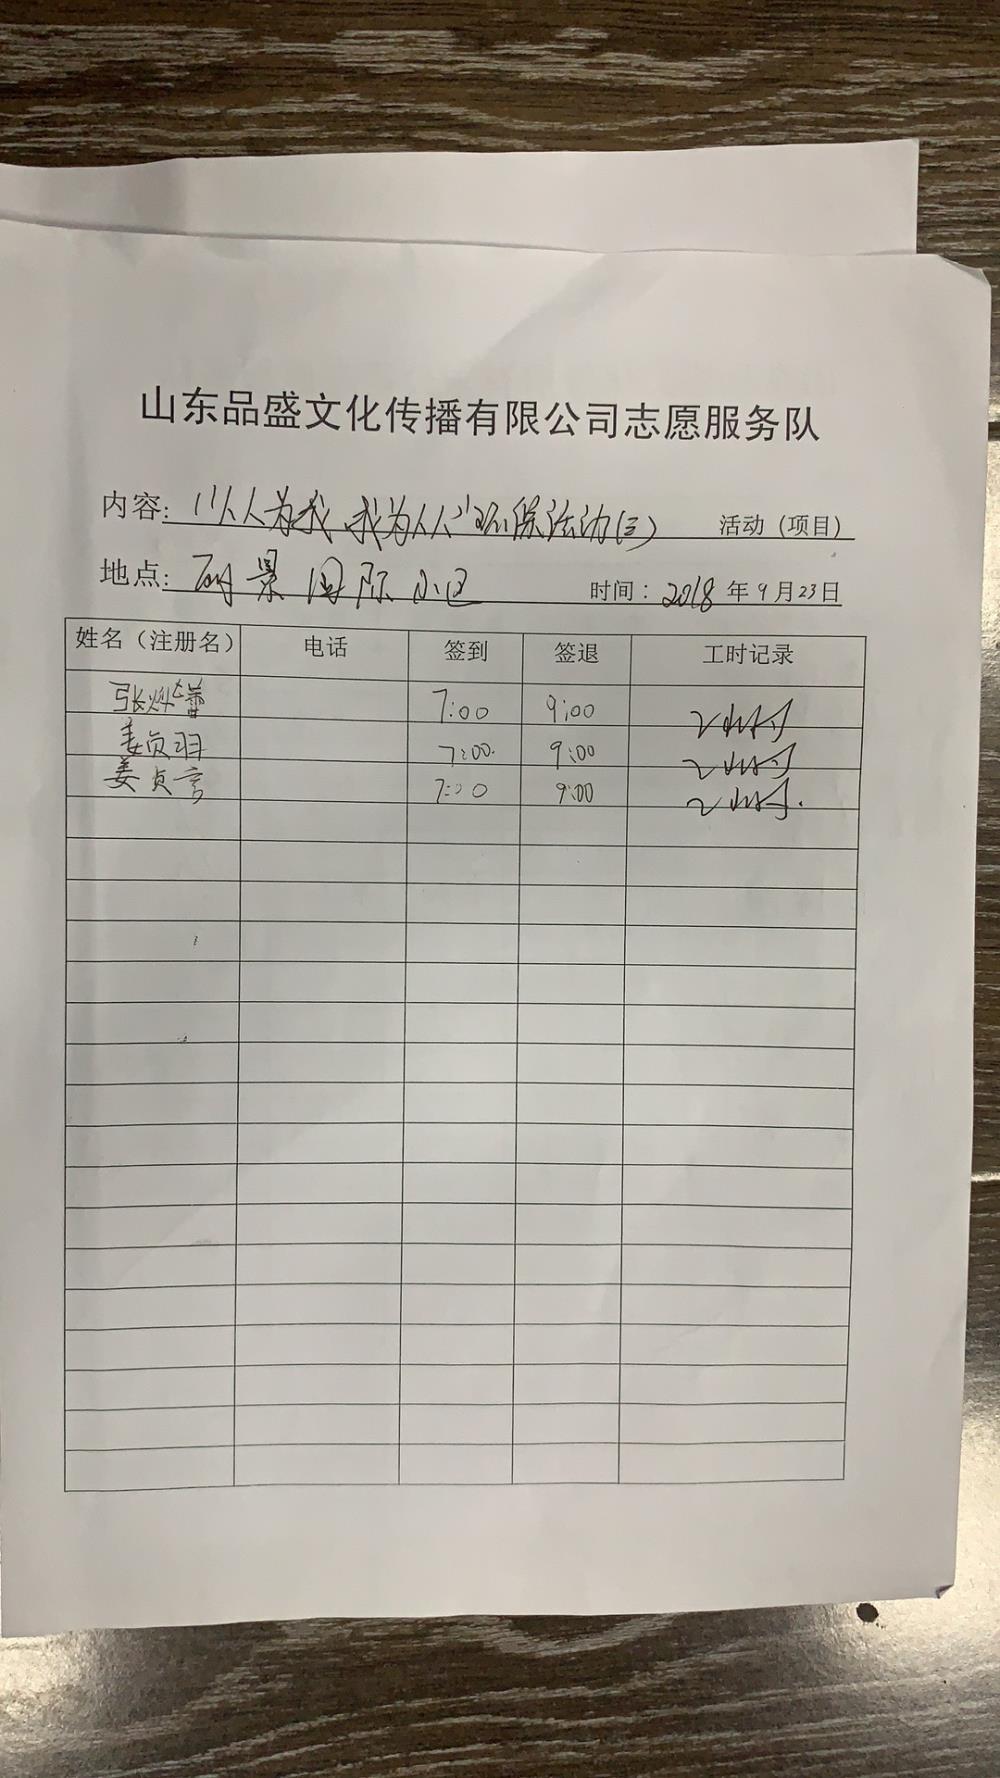 山东品盛文化传播有限公司志愿服务队
内容：“人人为我，我为人人”环保活动(三) 活动（项目）
地点：丽景国际小区 时间：2018年9月23日
姓名（注册名） 电话 签到 签退 工时记录
张 7:00 9:00 2小时
姜贞羽 7:00. 9:00 2小时
姜贞言 7:00 9:00 2小时.